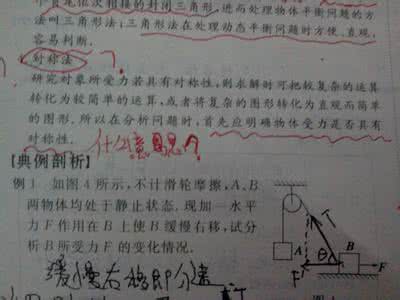 首尾依次相接的封闭三角形,进而处理物体平衡问题的方
法叫三角形法;三角形法在处理动态平衡问题时方便、直观,
容易判断.
对称法
研究对象所受力若具有对称性,则求解时可把较复杂的运算
转化为较简单的运算,或者将复杂的图形转化为直观而简单
的图形.所以在分析问题时,首先应明确物体受力是否具有
对称性.
什么意思?
【典例剖析】
例1 如图4所示,不计滑轮摩擦,A、B
两物体均处于静止状态.现加一水平
力F作用在B上使B缓慢右移,试分
析B所受力F的变化情况.
T
A
θ
B
F
F
缓慢右移即匀速